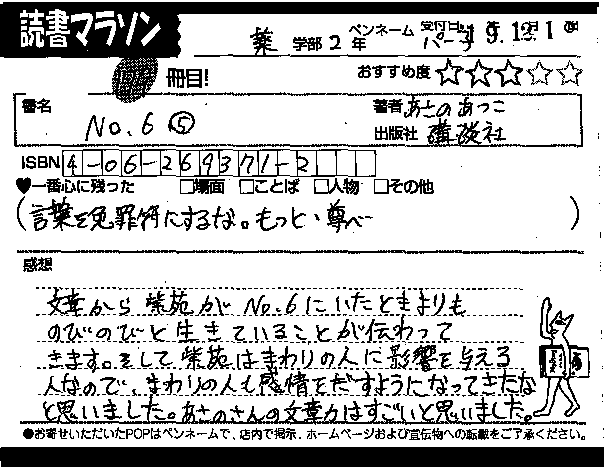 読書マラソン
薬 学部 2 年 ペンネーム パーラ 受付日 19.12.1
冊目! おすすめ度 ☆☆☆☆☆
書名 No.6 ⑤ 著者 あさのあつこ
出版社 講談社
ISBN 4-06-269371-2
♥一番心に残った □場面 □ことば □人物 □その他
(言葉を免罪符にするな。もっと、尊べ)
感想
文章から紫苑がNo.6にいたときよりも
のびのびと生きていることが伝わって
きます。そして紫苑はまわりの人に影響を与える
人なので、まわりの人も感情をだすようになってきたな
と思いました。あさのさんの文章力はすごいと思いました。
●お寄せいただいたPOPはペンネームで、店内で掲示、ホームページおよび宣伝物への転載をご了承ください。